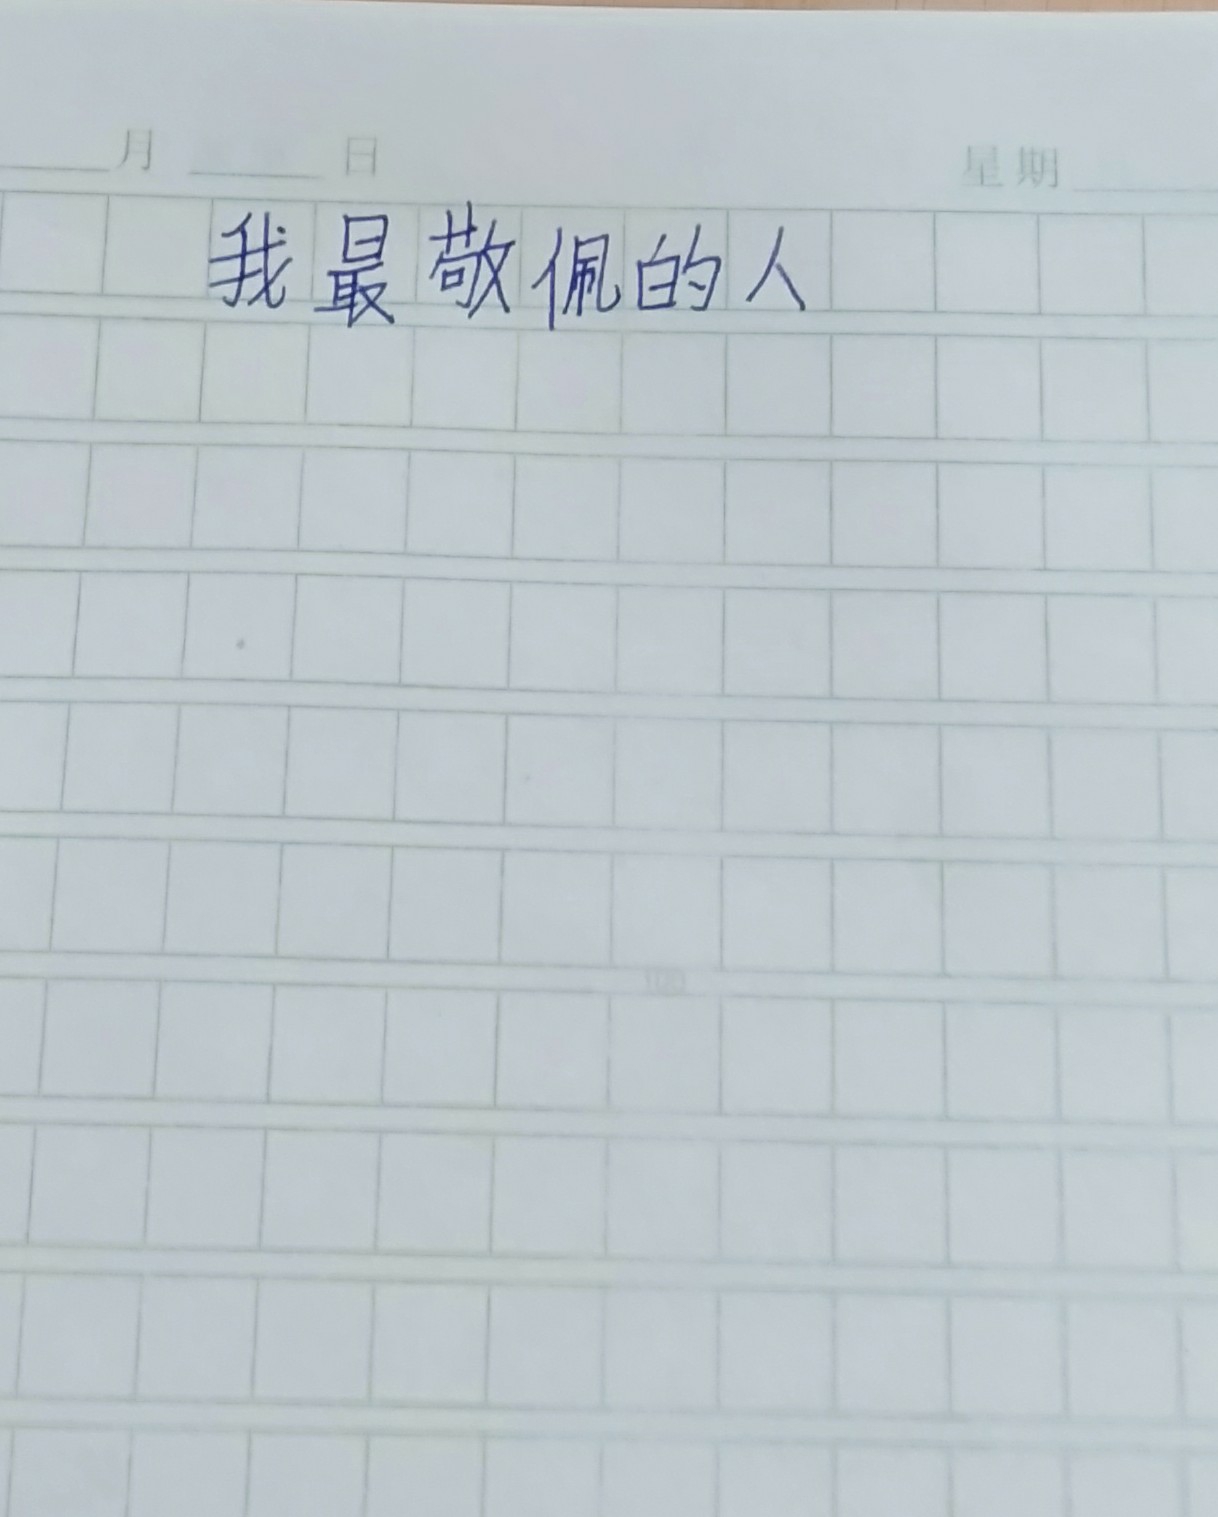 月 日 星期
我最敬佩的人